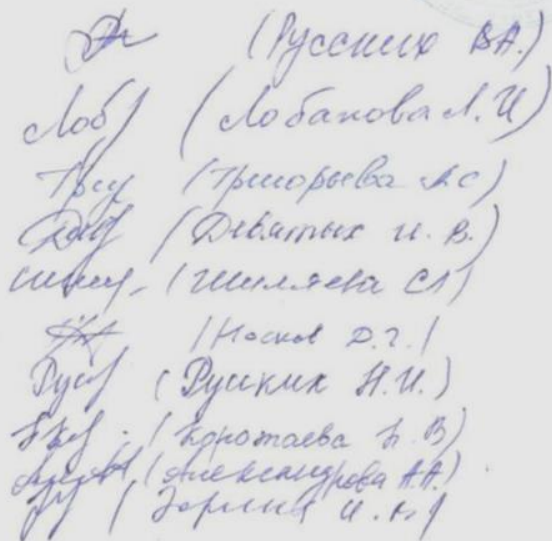 (Русских В.А.)
Лоб (Лобанова Л.И)
Григ (Григорьева А.С)
(Девятых И.В.)
(Шиляева С.Л)
(Носков Д.Г.)
Русс (Русских Н.И.)
(Коротаева Н.В)
(Александрова А.А.)
(Зорина И.Н)